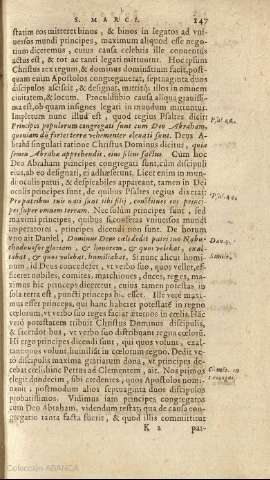 S. MARCI. 147
statim eos mitteret binos, & binos in legatos ad vni-
uersos mundi principes, maximum aliquod esse nego-
tium diceremus, cuius causa celebris ille conuentus
actus est, & tot ac tanti legati mittuntur. Hoc ipsum
Christus rex regum, & dominus dominatium facit, post-
quam enim Apostolos congregauerat, septuaginta duos
discipulos asciscit, & designat, mittitq; illos in omnem
ciuitatem, & locum. Procul dubio causa aliqua grauissi-
ma est, ob quam insignes legati in mundum mittuntur.
Impletum nunc illud est, quod regius Psaltes dicit
Principes populorum congregati sunt cum Deo Abraham,
quoniam dij fortes terræ vehementer eleuati sunt. Deus A-
brahã singulari ratione Christus Dominus dicitur, quia
semen Abrahæ apprehendit, eius filius factus. Cum hoc
Deo Abraham principes congregati sunt, cùm discipuli
eius, ab eo designati, ei adhæserunt. Licet enim in mun-
di oculis parui, & despicabiles appareant, tamen in Dei
oculis principes sunt, de quibus Psaltes regius dixerat:
Pro patribus tuis nati sunt tibi filij, constitues eos princi-
pes super omnem terram. Nec solùm principes sunt, sed
maximi principes, quibus
imperatores, principes dicendi non sunt. De horum
vno ait Daniel, Dominus Deus cæli dedit patri tuo Nabu-
chodonosor gloriam, & honorem, & quos volebat, exal-
tabat, & quos volebat, humiliabat. Si nunc alicui homi-
num, id Deus concederet, vt verbo suo, quos vellet, ef-
ficeret nobiles, comites, marchiones, duces, reges, ma-
ximus hic princeps diceretur, cuius tamen potestas in
sola terra est,
mus esset princeps, qui hanc haberet potestatẽ in regno
cœlorum, vt verbo suo reges faciat æternos in cœlis. Hãc
verò potestatem tribuit Christus Dominus discipulis,
& sacerdotibus, vt verbo suo distribuant regna cœlorũ.
Hi ergo principes dicendi sunt, qui quos volunt, exal-
tant, quos volunt, humiliãt in cœlorum regno. Dedit ve-
rò discipulis maxima gratiarum dona, vt principes de-
cebat cœlestes: Petrus ad Clementem, ait. Nos primos
elegit duodecim, sibi credentes, quos Apostolos nomi-
nauit; postmodum alios septuaginta duos discipulos
probatissimos. Vidimus iam principes congregatos
cum Deo Abraham, videndum restat, qua de causa con-
gregatio tanta facta fuerit, & quod illis committitur
K 2 par-
Psal. 44.
Dan. 5.
Simile.
Colección ABANCA